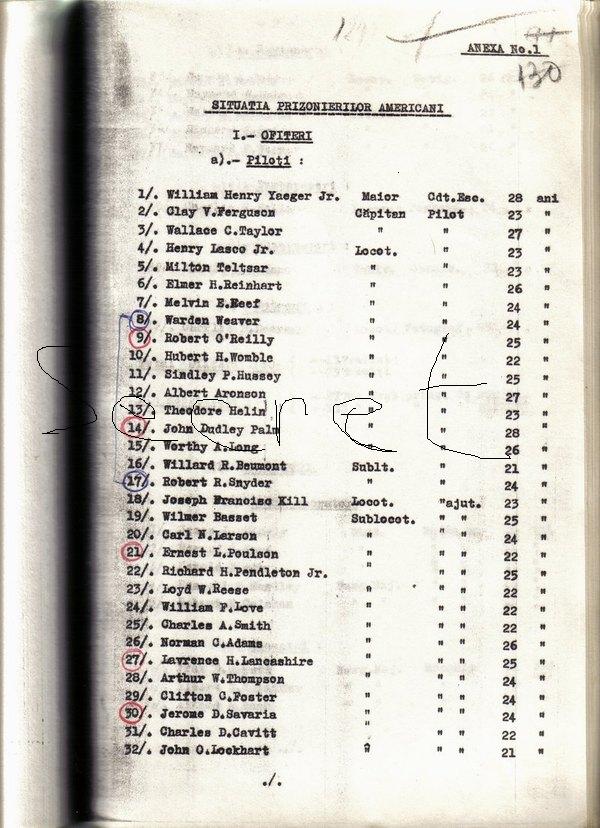 ANEXA No.1
130
SITUATIA PRIZONIERILOR AMERICANI
I.- OFITERI
a).- Piloti :
1/. William Henry Yaeger Jr. Maior Cdt.Esc. 28 ani
2/. Clay V.Ferguson Căpitan Pilot 23 "
3/. Wallace C.Taylor " " 27 "
4/. Henry Lasco Jr. Locot. " 23 "
5/. Milton Teltsar " " 23 "
6/. Elmer H.Reinhart " " 26 "
7/. Melvin E.Neef " " 24 "
8/. Warden Weaver " " 24 "
9/. Robert O'Reilly " " 25 "
10/. Hubert H.Womble " " 22 "
11/. Sindley P.Hussey " " 25 "
12/. Albert Aronson " " 27 "
13/. Theodore Helin " " 23 "
14/. John Dudley Palm " " 28 "
15/. Worthy A.Long " " 26 "
16/. Willard R.Beumont Sublt. " 21 "
17/. Robert R.Snyder " " 24 "
18/. Joseph Francisc Kill Locot. "ajut. 23 "
19/. Wilmer Basset Sublocot. " " 25 "
20/. Carl N.Larson " " " 24 "
21/. Ernest L.Poulson " " " 22 "
22/. Richard H.Pendleton Jr. " " " 25 "
23/. Loyd W.Reese " " " 22 "
24/. William F.Love " " " 22 "
25/. Charles A.Smith " " " 22 "
26/. Norman C.Adams " " " 26 "
27/. Lavrence H.Lancashire " " " 25 "
28/. Arthur W.Thompson " " " 24 "
29/. Clifton C.Foster " " " 24 "
30/. Jerome D.Savaria " " " 24 "
31/. Charles D.Cavitt " " " 22 "
32/. John O.Lockhart " " " 21 "
./.
Secret